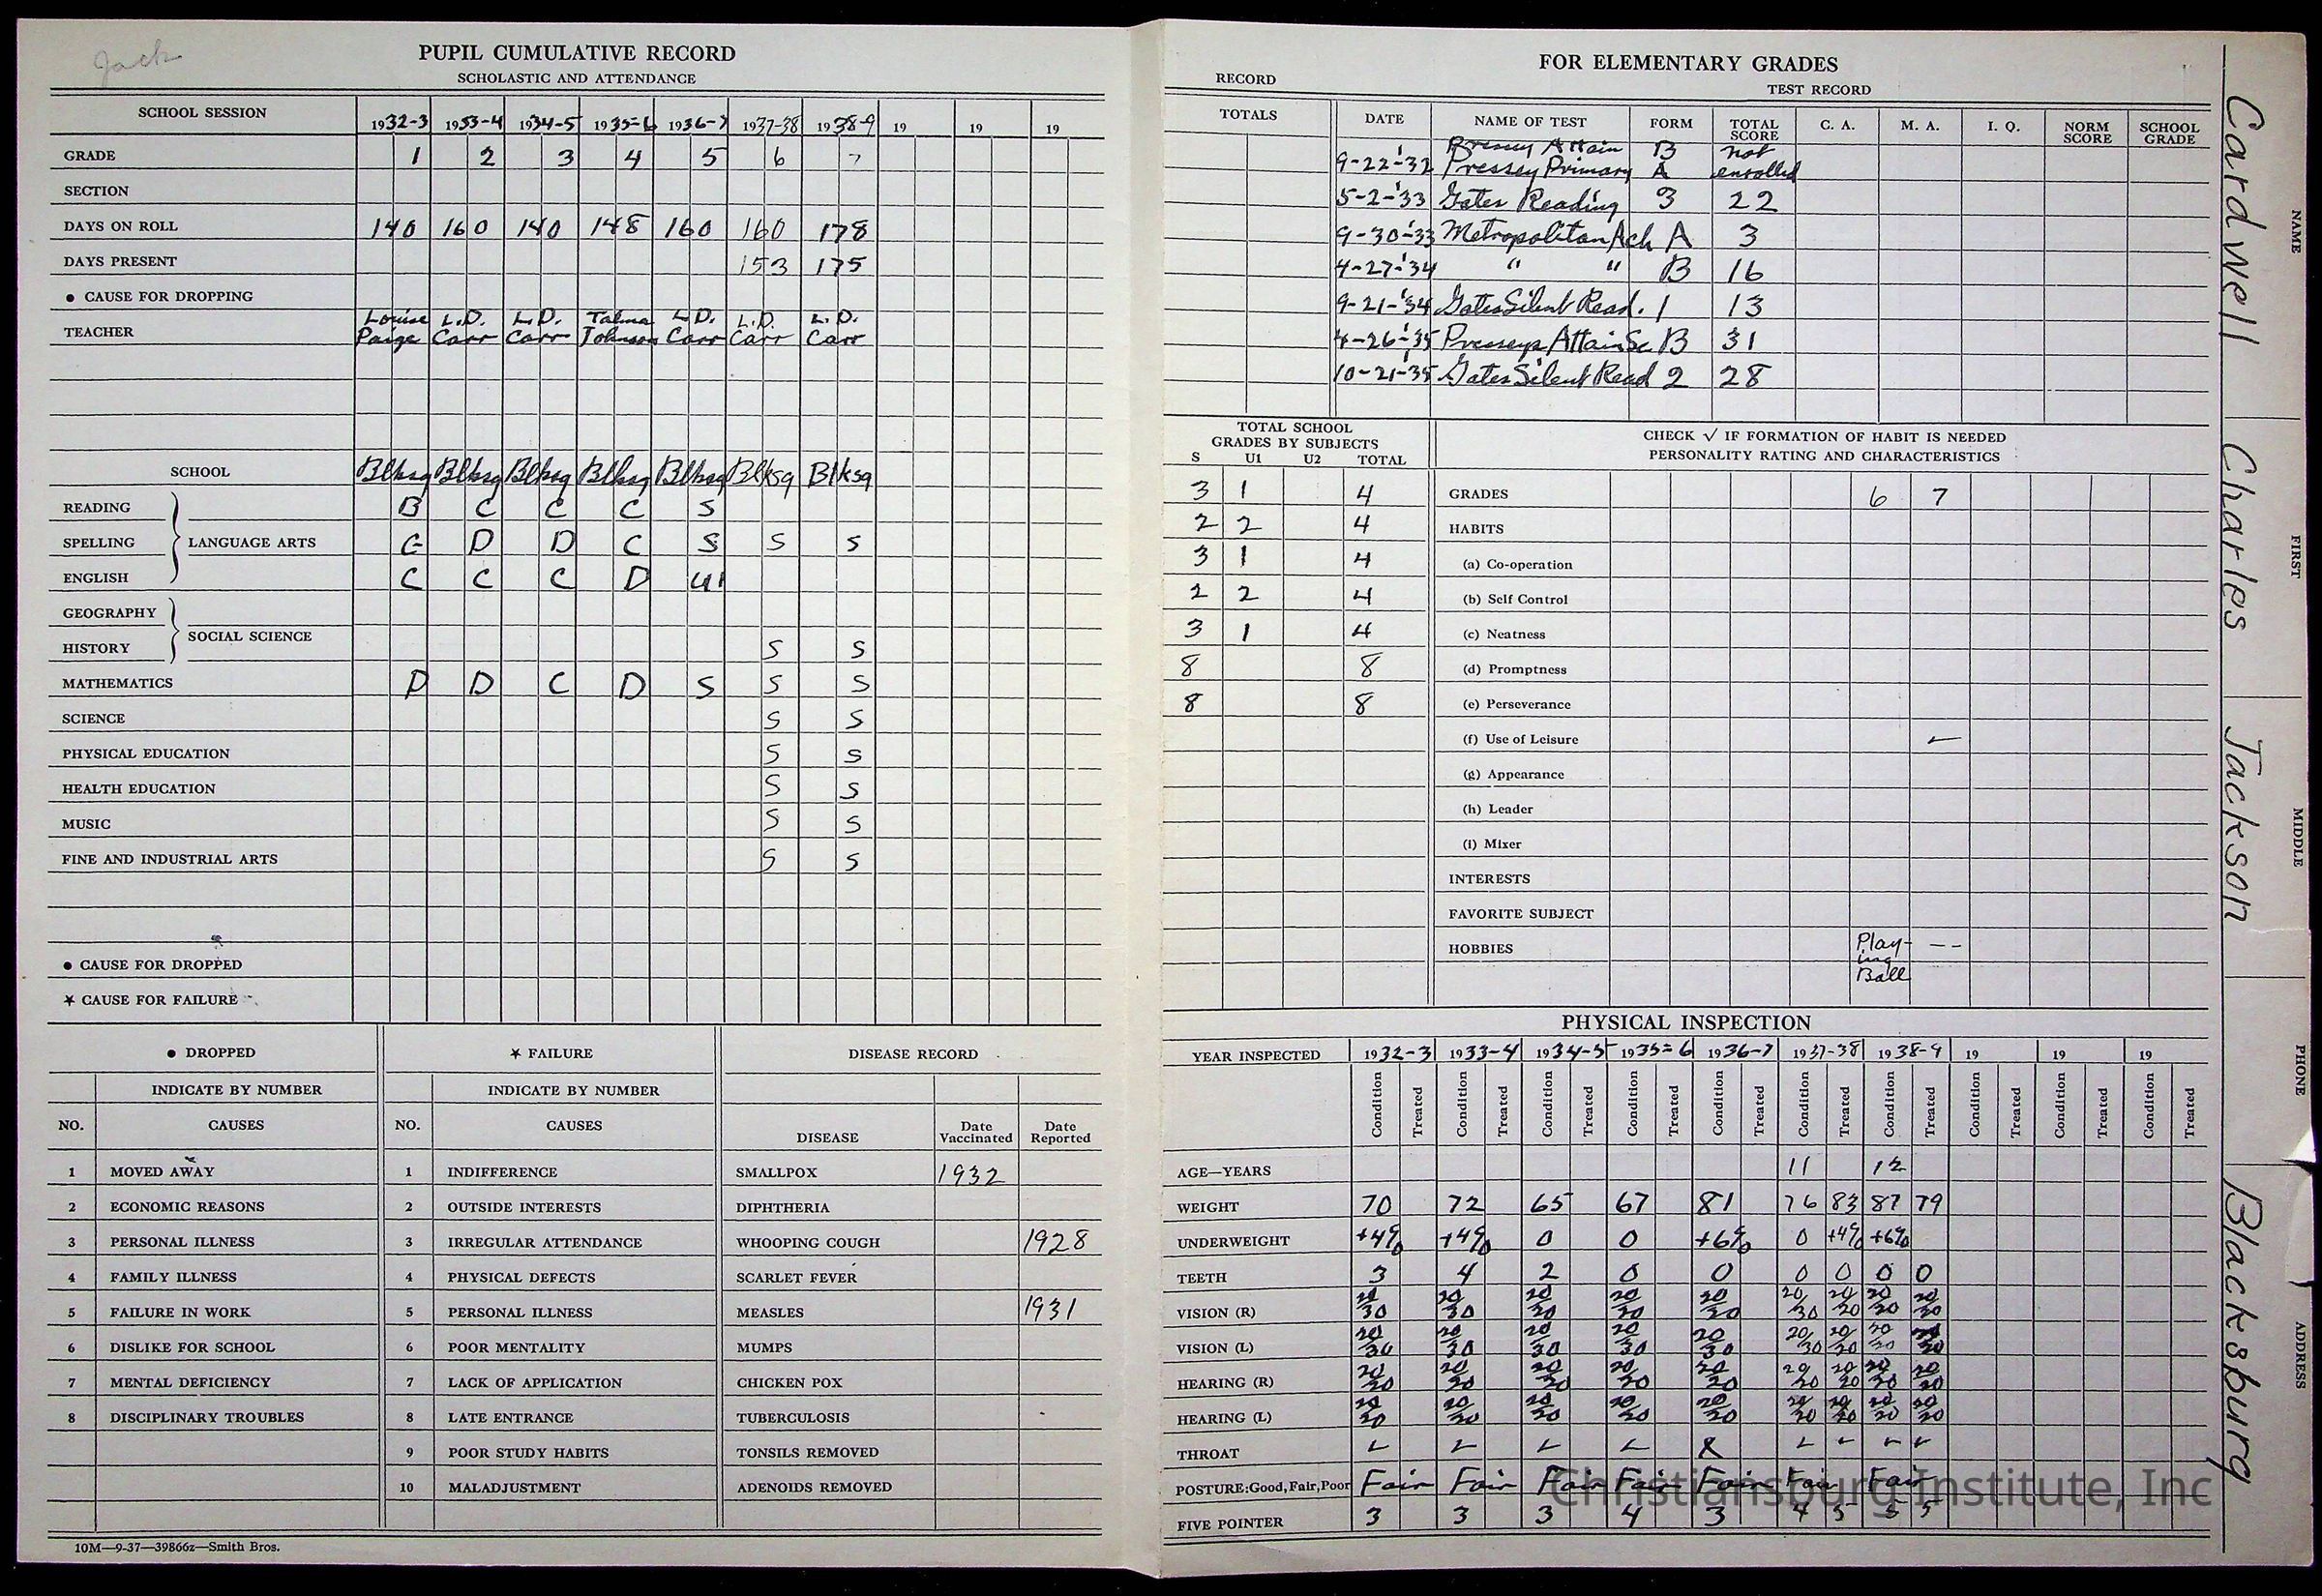 Jack
PUPIL CUMULATIVE RECORD
SCHOLASTIC AND ATTENDANCE
SCHOOL SESSION 1932-3 1933-4 1934-5 1935-6 1936-7 1937-38 1938-9 19 19 19
GRADE 1 2 3 4 5 6 7
SECTION
DAYS ON ROLL 140 160 140 148 160 160 178
DAYS PRESENT 153 175
● CAUSE FOR DROPPING
Louise L.D. L.D. Talma L.D. L.D. L.D.
TEACHER Paige Carr Carr Johnson Carr Carr Carr
SCHOOL Blksg Blksg Blksg Blksg Blksg Blksg Blksg
READING B C C C S
SPELLING LANGUAGE ARTS C D D C S S S
ENGLISH C C C D U1
GEOGRAPHY
SOCIAL SCIENCE
HISTORY S S
MATHEMATICS D D C D S S S
SCIENCE S S
PHYSICAL EDUCATION S S
HEALTH EDUCATION S S
MUSIC S S
FINE AND INDUSTRIAL ARTS S S
● CAUSE FOR DROPPED
★ CAUSE FOR FAILURE
● DROPPED
INDICATE BY NUMBER
NO. CAUSES
1 MOVED AWAY
2 ECONOMIC REASONS
3 PERSONAL ILLNESS
4 FAMILY ILLNESS
5 FAILURE IN WORK
6 DISLIKE FOR SCHOOL
7 MENTAL DEFICIENCY
8 DISCIPLINARY TROUBLES
★ FAILURE
INDICATE BY NUMBER
NO. CAUSES
1 INDIFFERENCE
2 OUTSIDE INTERESTS
3 IRREGULAR ATTENDANCE
4 PHYSICAL DEFECTS
5 PERSONAL ILLNESS
6 POOR MENTALITY
7 LACK OF APPLICATION
8 LATE ENTRANCE
9 POOR STUDY HABITS
10 MALADJUSTMENT
DISEASE RECORD
DISEASE Date Vaccinated Date Reported
SMALLPOX 1932
DIPHTHERIA
WHOOPING COUGH 1928
SCARLET FEVER
MEASLES 1931
MUMPS
CHICKEN POX
TUBERCULOSIS
TONSILS REMOVED
ADENOIDS REMOVED
10M—9-37—39866z—Smith Bros.
FOR ELEMENTARY GRADES
RECORD
TEST RECORD
TOTALS DATE NAME OF TEST FORM TOTAL SCORE C. A. M. A. I. Q. NORM SCORE SCHOOL GRADE
Pressey Attain B not
9-22-'32 Pressey Primary A enrolled
5-2-'33 Gates Reading 3 22
9-30-'33 Metropolitan Ach A 3
4-27-'34 " " B 16
9-21-'34 Gates Silent Read. 1 13
4-26-'35 Presseys Attain Sc B 31
10-21-'35 Gates Silent Read 2 28
TOTAL SCHOOL
GRADES BY SUBJECTS
S U1 U2 TOTAL
3 1 4
2 2 4
3 1 4
2 2 4
3 1 4
8 8
8 8
CHECK √ IF FORMATION OF HABIT IS NEEDED
PERSONALITY RATING AND CHARACTERISTICS
GRADES 6 7
HABITS
(a) Co-operation
(b) Self Control
(c) Neatness
(d) Promptness
(e) Perseverance
(f) Use of Leisure ✓
(g) Appearance
(h) Leader
(i) Mixer
INTERESTS
FAVORITE SUBJECT
HOBBIES Play- --
ing
Ball
PHYSICAL INSPECTION
YEAR INSPECTED 1932-3 1933-4 1934-5 1935-6 1936-7 1937-38 1938-9 19 19 19
Condition Treated Condition Treated Condition Treated Condition Treated Condition Treated Condition Treated Condition Treated Condition Treated Condition Treated Condition Treated
AGE—YEARS 11 12
WEIGHT 70 72 65 67 81 76 83 87 79
UNDERWEIGHT +4% +4% 0 0 +6% 0 +4% +6%
TEETH 3 4 2 0 0 0 0 0 0
VISION (R) 20/30 20/30 20/20 20/20 20/20 20/30 20/20 20/20 20/20
VISION (L) 20/30 20/30 20/30 20/30 20/30 20/30 20/20 20/20 20/20
HEARING (R) 20/20 20/20 20/20 20/20 20/20 20/20 20/20 20/20 20/20
HEARING (L) 20/20 20/20 20/20 20/20 20/20 20/20 20/20 20/20 20/20
THROAT ✓ ✓ ✓ ✓ X ✓ ✓ ✓ ✓
POSTURE: Good, Fair, Poor Fair Fair Fair Fair Fair Fair Fair
FIVE POINTER 3 3 3 4 3 4 5 5 5
Christiansburg Institute, Inc
Cardwell Charles Jackson Blacksburg
NAME FIRST MIDDLE PHONE ADDRESS